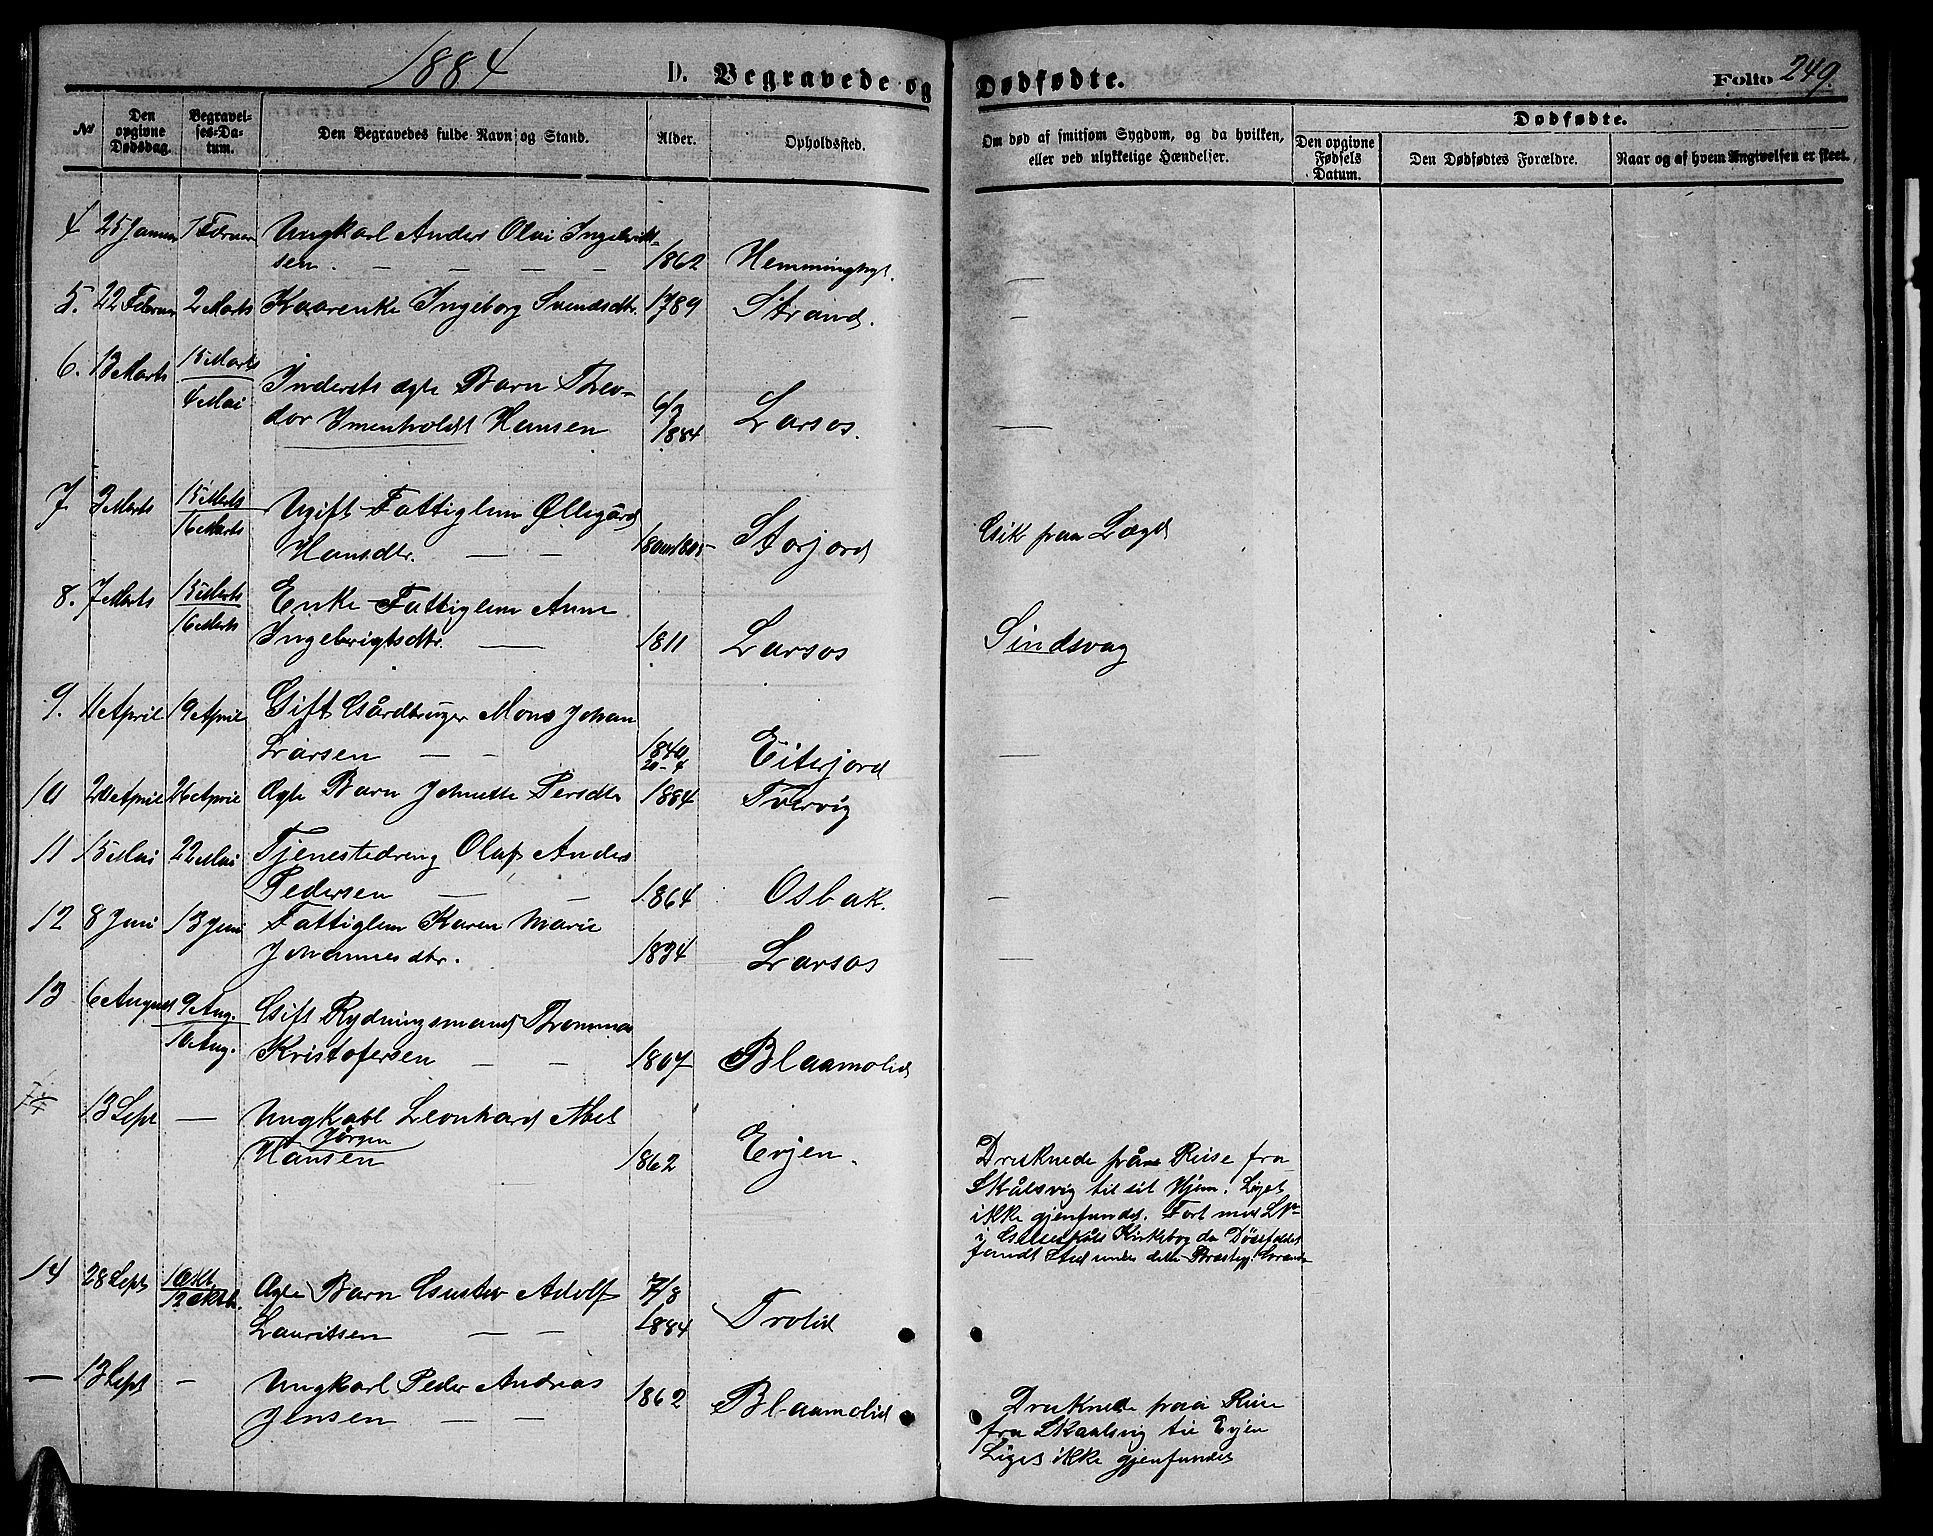 1884
D. Begravede og Dødfødte.
Folio 249.
No
Den opgivne Dødsdag.
Begravelses-Datum.
Den Begravedes fulde Navn og Stand.
Alder.
Opholdssted.
Om død af smitsom Sygdom, og da hvilken, eller ved ulykkelige Hændelser.
Dødfødte.
Den opgivne Fødsels Datum.
Den Dødfødtes Forældre.
Naar og af hvem Angivelsen er skeet.
4 25 Januar 7 Februar Ungkarl Anders Olai Ingebrikt-
sen. — — — — 1862 —
5. 22 Februar 2 Marts Kaarenke Ingeborg Svendsdtr. 1789 Strand. —
6. 13 Marts 15 Marts
4 Mai Inderets ægte Barn Theo-
dor Imenholdt Hansen 6/3 1884 Larsos. —
7 3 Marts 15 Marts
16 Marts Ugift Fattiglem Øllegård
Hansdtr. — — Storjord Gik paa Lægd
8. 7 Marts 15 Marts
16 Marts Enke Fattiglem Anne
Ingebrigtsdtr. — 1811 Larsos Sindsvag
9. 11 April 19 April Gift Gårdbruger Mons Johan
Larsen — — 1840 Eiterjord —
10 20 April 26 April Ægte Barn Johnette Persdtr 20-4 1884 Tvervig
11 15 Mai 22 Mai Tjenestedreng Olaf Anders
Pedersen — — 1864 Osbak. —
12 8 Juni 13 Juni Fattiglem Karen Marie
Johannesdtr. 1834 Larsos —
13 6 August 9 Aug.
10 Aug. Gift Rydningsmand Thommas
Kristofersen — — 1807 Blaamolid
13 Sept — Ungkarl Leonhard Abel
Jørgen
Hansen 1862 Evjen. Druknede på Reise fra
Skålsvig til sit Hjem. Liget
ikke gjenfundet. Fort med No
i Gilleskåls Kirkebog da Dødsfaldet
fandt Sted under dette Præstegj.
14 28 Sept 10 Okt.
12 Oktb. Ægte Barn Gustav Adolf
Lauritsen — — 7/8 1884 Trolid
— 13 Sept — Ungkarl Peder Andreas
Jensen — — 1862 Blaamolid Druknede paa Reise
fra Skaalsvig til Evjen
Liget ikke gjenfundet